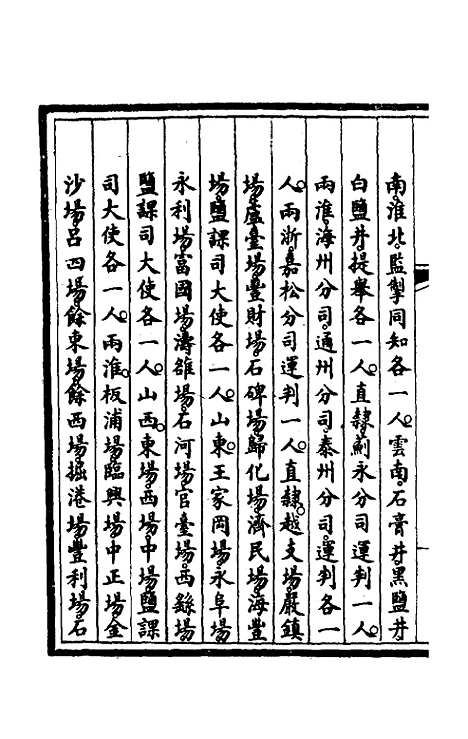 南。淮北。監掣同知各一人。雲南。石膏井。黑鹽井。
白鹽井。提舉各一人。直隸。薊永分司運判一人。
兩淮。海州分司。通州分司。泰州分司。運判各一
人。兩浙。嘉松分司運判一人。直隸。越支場。嚴鎮
場。蘆臺場。豐財場。石碑場。歸化場。濟民場。海豐
場。鹽課司大使各一人。山東。王家岡場。永阜場。
永利場。富國場。濤雒場。石河場。官臺場。西繇場。
鹽課司大使各一人。山西。東場。西場。中場。鹽課
司大使各一人。兩淮。板浦場。臨興場。中正場。金
沙場。呂四場。餘東場。餘西場。掘港場。豐利場。石